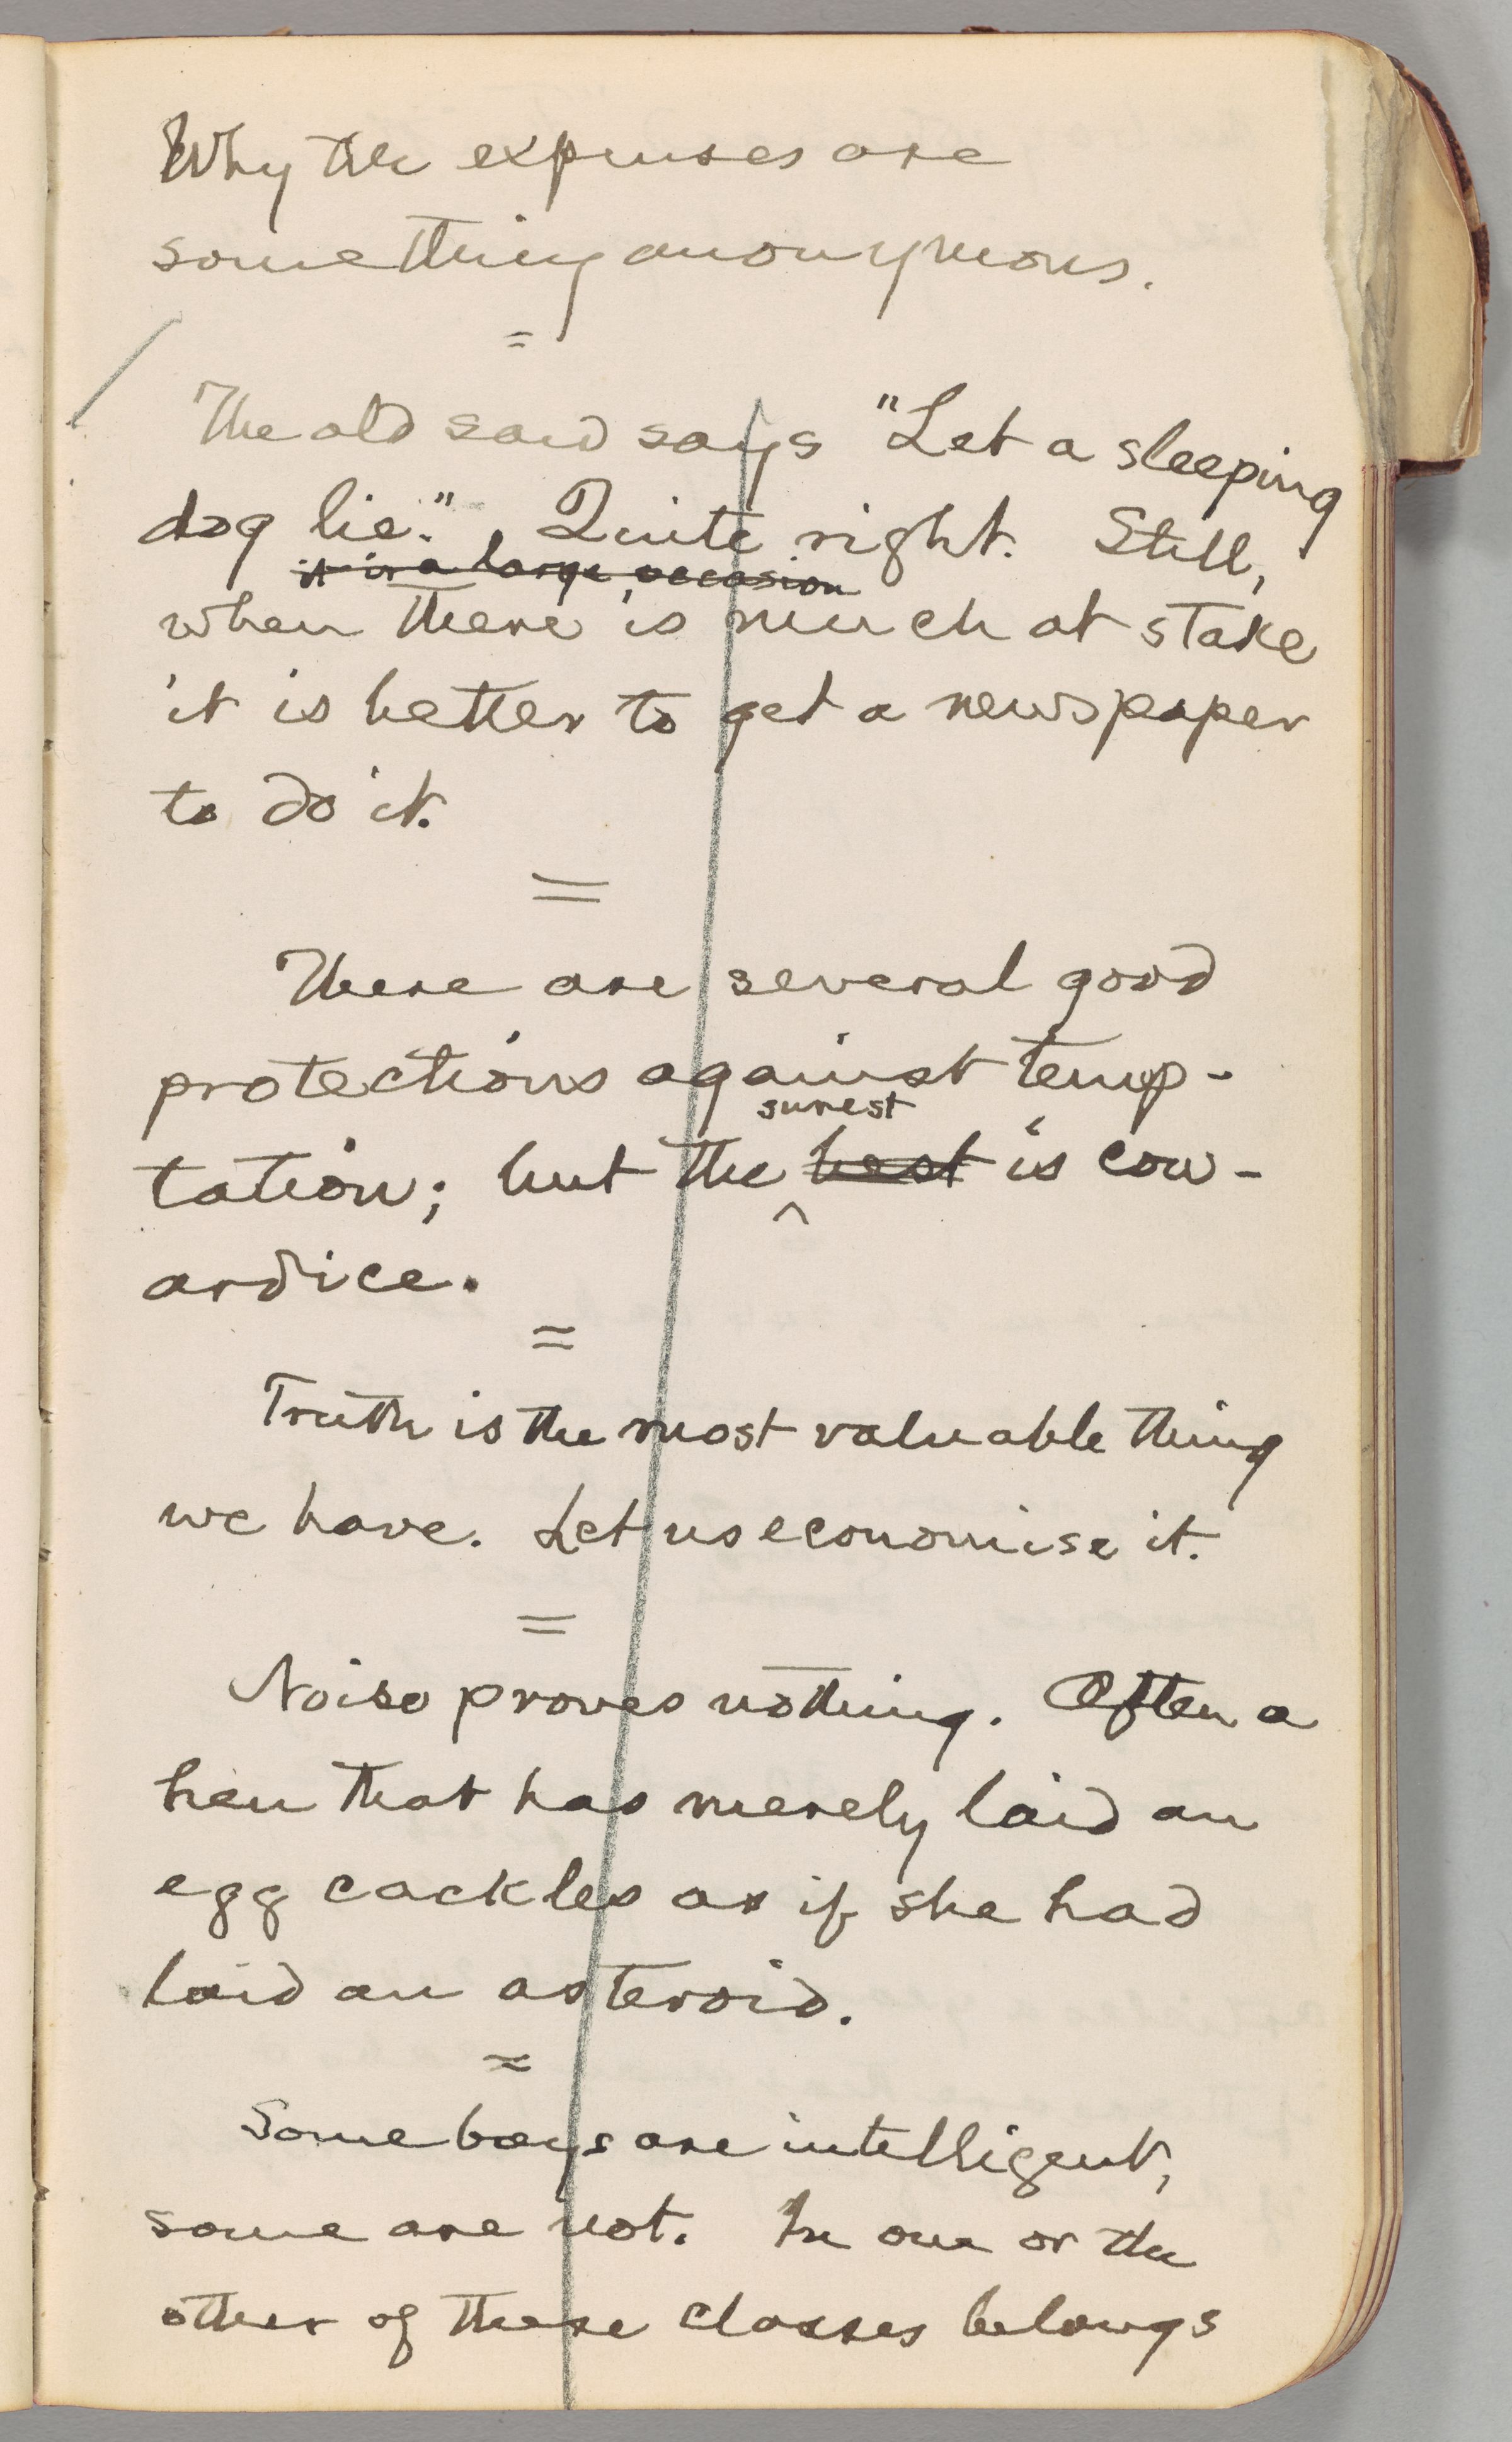 Why the expenses are
something anonymous.
=
The old saw says "Let a sleeping
dog lie." Quite right. Still,
it is a large occasion
when there is much at stake
it is better to get a newspaper
to do it.
=
There are several good
protections against temp-
surest
tation; but the best is cow-
ardice.
=
Truth is the most valuable thing
we have. Let us economise it.
=
Noise proves nothing. Often a
hen that has merely laid an
egg cackles as if she had
laid an asteroid.
=
Some boys are intelligent,
some are not. In one or the
other of these classes belongs